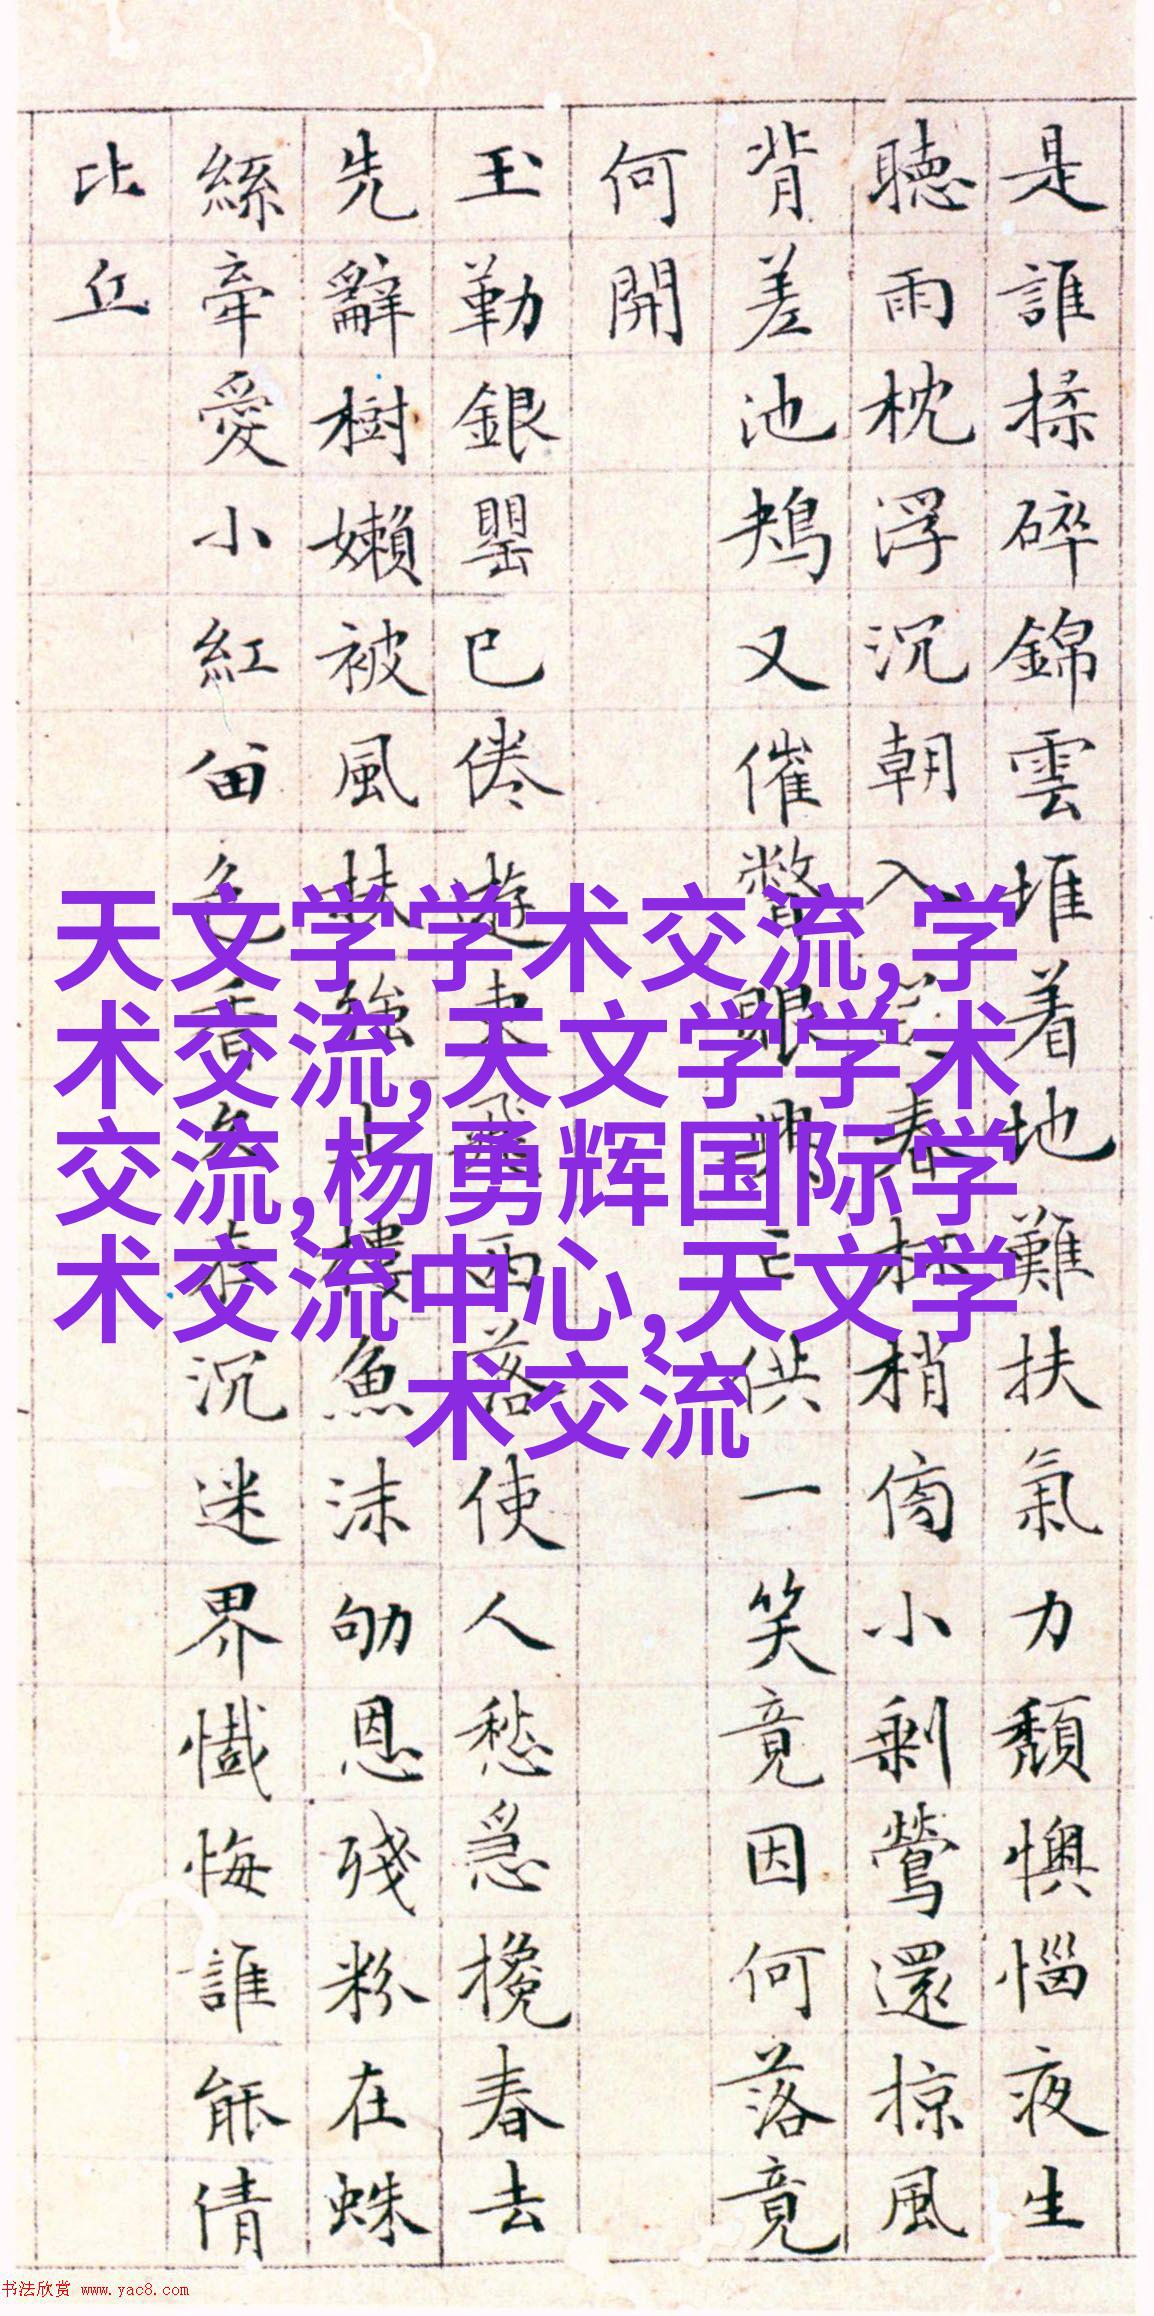 是誰揉碎錦雲堆着地難扶氣力頹懊惱夜生
聴雨枕浮沉朝入春林梢小剩鶯還掠風
背差池鳺又催瞥眼興亡供一笑竟因何落竟
何開
玉勒銀罌已倦遊東飛西落使人愁急攙春去
先辭樹嬾被風扶強上樓魚沫恩殘粉在蛛
絲牽愛小紅留色香久在沉迷界懺悔誰能倩
比丘
天文学学术交流,学
术交流,天文学学术
交流,杨勇辉国际学
术交流中心,天文学
术交流
书法欣赏 www.yac8.com